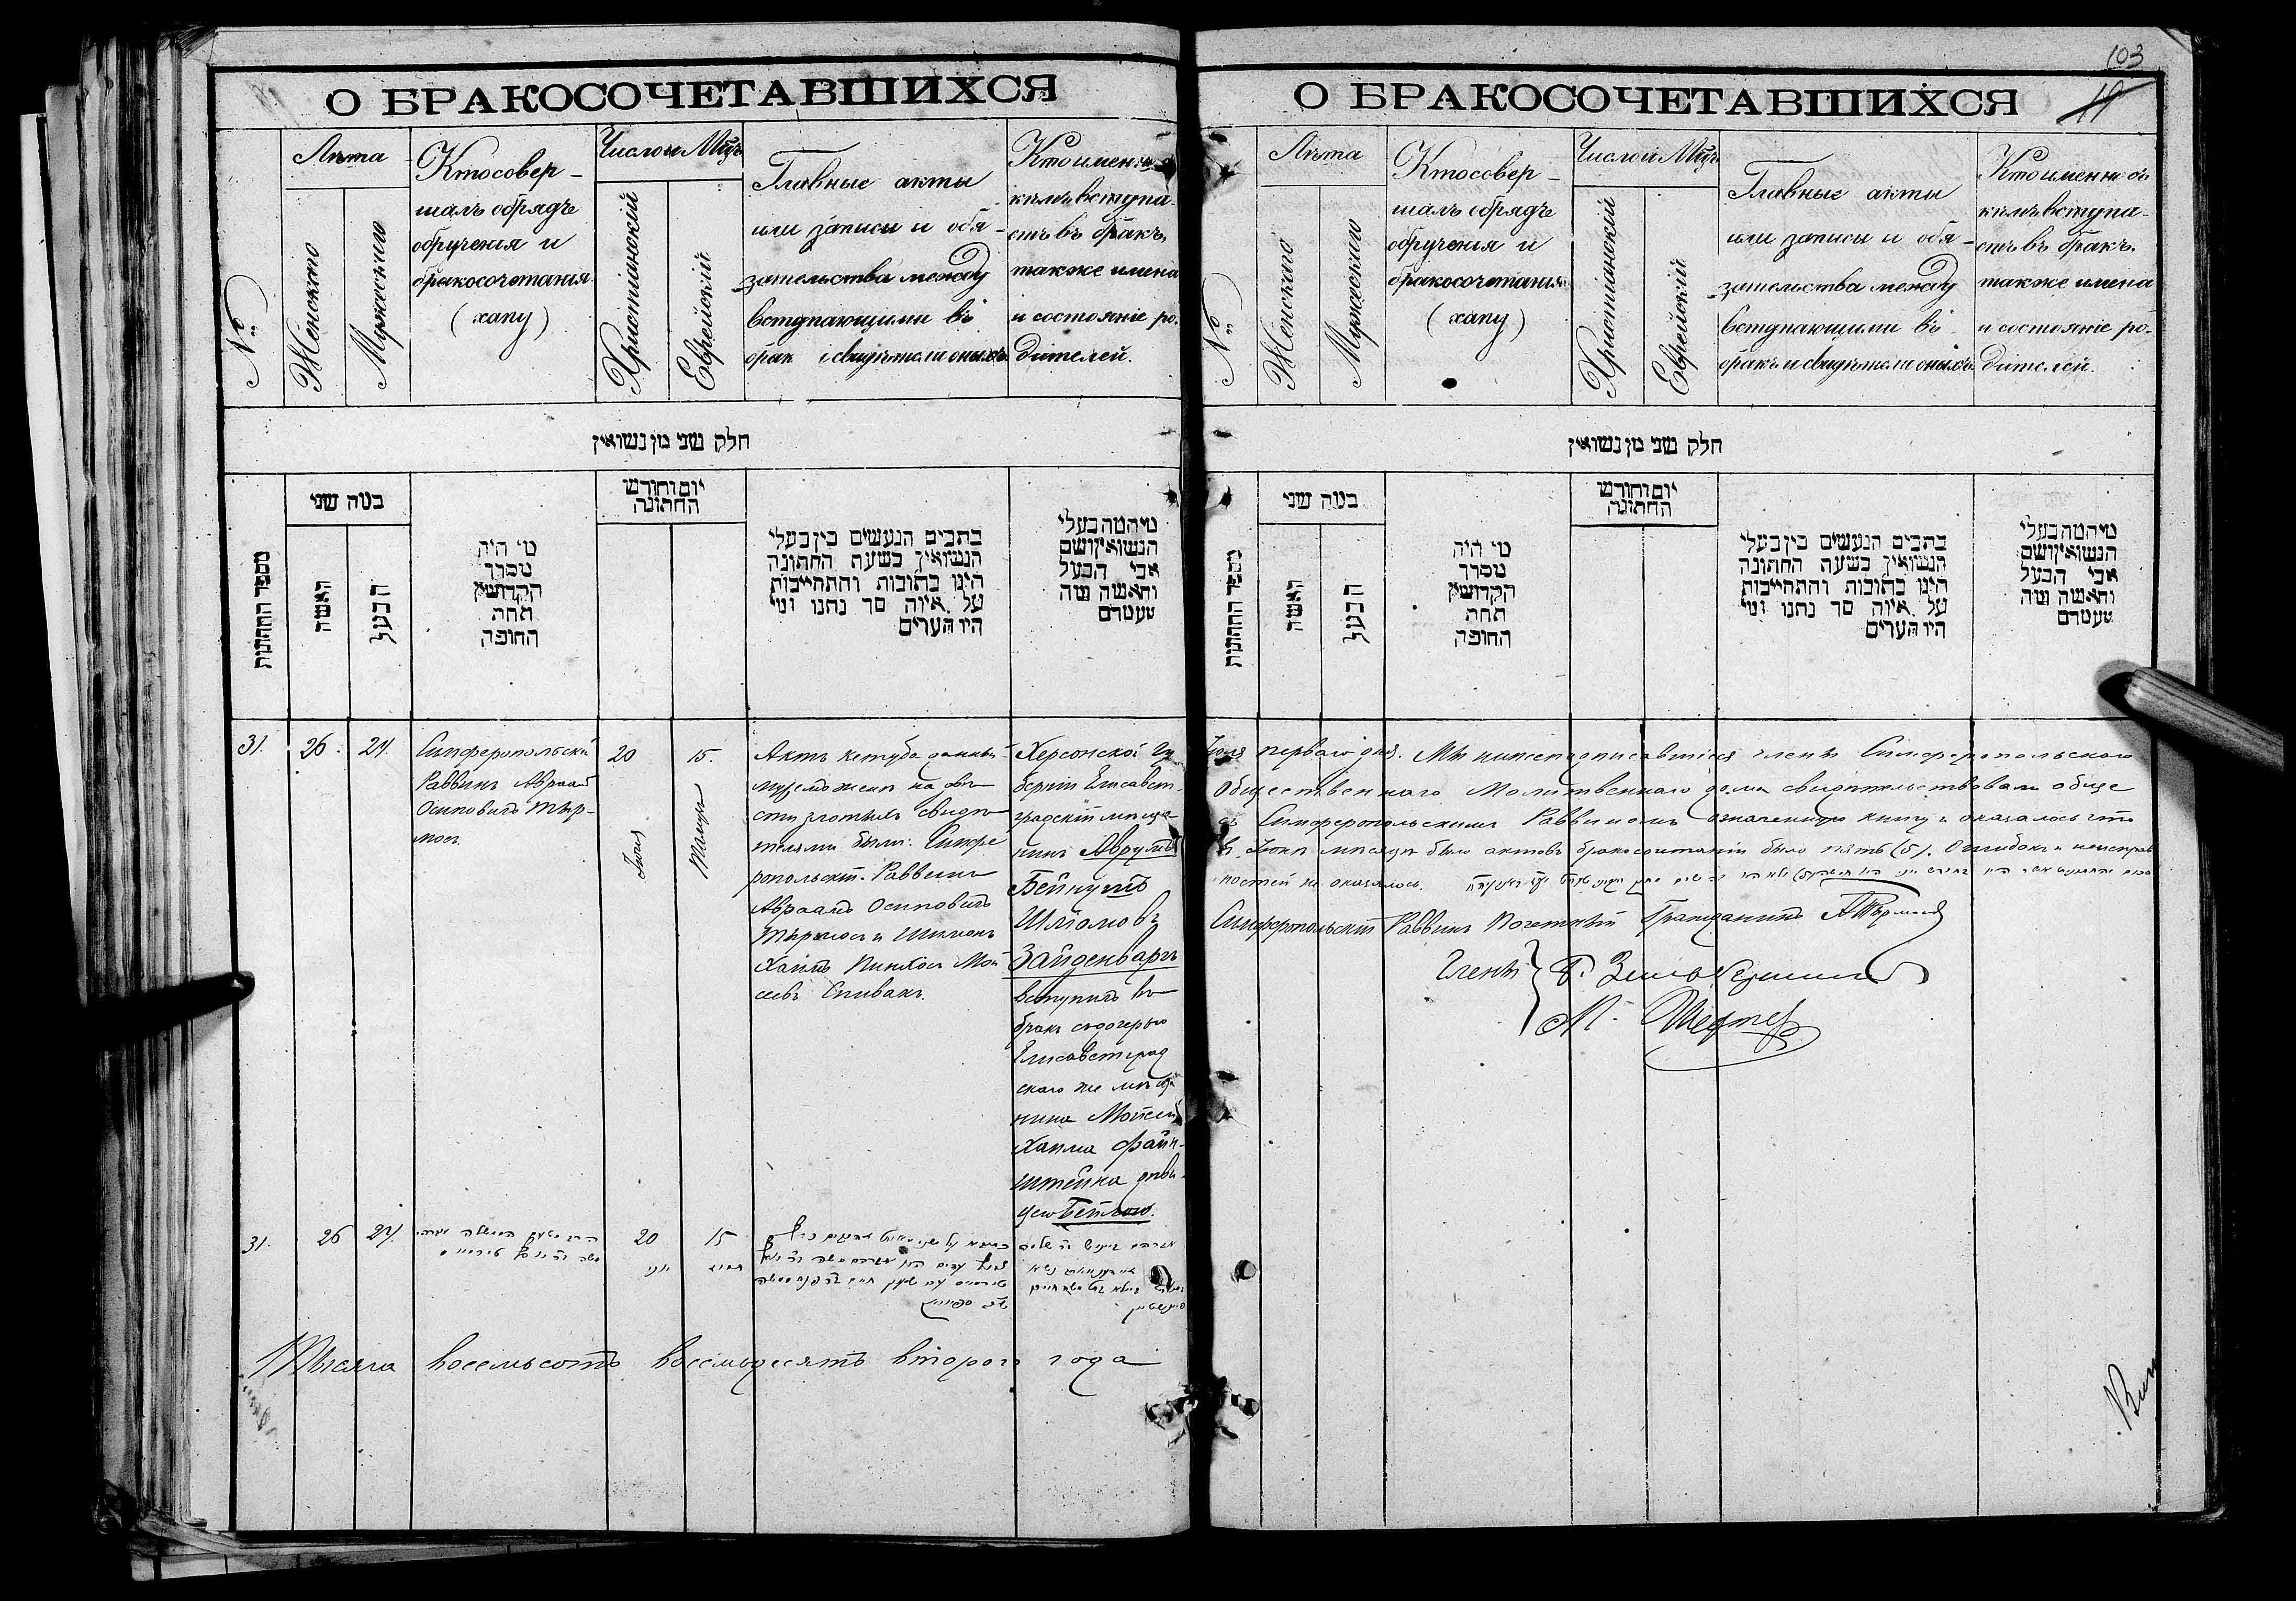 О БРАКОСОЧЕТАВШИХСЯ
№
Лѣта
Женскаго
Мужескаго
Кто совер-
шалъ обрядъ
обрученія и
бракосочетанія
(хапу)
Число и Мѣц
Христіанскій
Еврейскій
Главные акты
или записи и обя-
зательства между
вступающими въ
брак и свидѣтели оныхъ
Кто именно съ
кѣмъ вступа-
етъ въ бракъ,
также имена
и состояніе ро-
дителей.
חלק שני מן נשואין
מספר החתונות
במה שני
האשה
הבעל
מי היה
מסדר
הקדושין
תחת
החופה
יום וחודש
החתונה
כתבים הנעשים בין בעלי
הנשואין בשעת החתונה
היינו כתובות והתחייבות
על איזה סך נתנו ומי
היו העדים
מי המה בעלי
הנשואין ושם
אבי הבעל
והאשה ומה
מעמדם
31.
26.
24.
Симферопольскій
Раввинъ Авраамъ
Осиповичъ Тыр-
мосъ
20
Іюня
15.
Тамуза
Актъ кетуба данный
мужемъ женѣ на двѣ
сти злотыхъ свидѣ
телями были: Симфе
ропольскій Раввинъ
Авраамъ Осиповичъ
Тырмосъ и Шимонъ
Хаимъ Пинхосъ Мой
сеевъ Спивакъ.
Херсонской Гу
берніи Елисавет-
градскій мѣща
нинъ Аврумъ
Бейнушъ
Шлiомовъ
Зайденваргъ
вступилъ въ
бракъ съ дочерью
Елисаветград
скаго же мѣща
нина Мойсея
Хаима Файн-
штейна дѣви-
цею Бейлою.
31.
26
24.
20
יוני
15
תמוז
Тысяча восемьсотъ восемьдесятъ второго года
103
О БРАКОСОЧЕТАВШИХСЯ
№
Лѣта
Женскаго
Мужескаго
Кто совер-
шалъ обрядъ
обрученія и
бракосочетанія
(хапу)
Число и Мѣц
Христіанскій
Еврейскій
Главные акты
или записи и обя-
зательства между
вступающими въ
бракъ и свидѣтели оныхъ
Кто именно съ
кѣмъ вступа-
етъ въ бракъ,
также имена
и состояніе ро-
дителей.
חלק שני מן נשואין
מספר החתונות
במה שני
האשה
הבעל
מי היה
מסדר
הקדושין
תחת
החופה
יום וחודש
החתונה
כתבים הנעשים בין בעלי
הנשואין בשעת החתונה
היינו כתובות והתחייבות
על איזה סך נתנו ומי
היו העדים
מי המה בעלי
הנשואין ושם
אבי הבעל
והאשה ומה
מעמדם
Іюля перваго дня. Мы нижеподписавшіеся члены Симферопольскаго
Общественнаго Молитвеннаго дома свидѣтельствовали обще
съ Симферопольскимъ Раввиномъ означенную книгу и оказалось что
въ Іюнѣ мѣсяцѣ было актовъ бракосочетаній было пять (5). Ошибокъ и неисправ
ностей не оказалось.
Симферопольскій Раввинъ Почетный Гражданинъ АТырмосъ
Члены